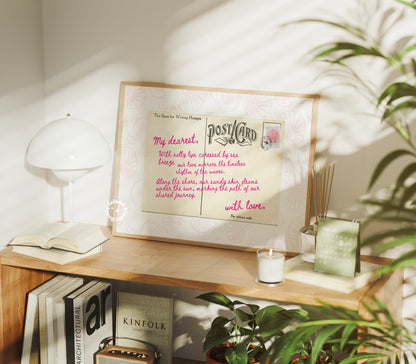 This Space for Writing Messages
POST CARD
My dearest,
With salty lips caressed by sea
breeze, our love mirrors the timeless
rhythm of the waves.
Along the shore, our sandy skin gleams
under the sun, marking the path of our
shared journey.
with love,
For address only.
ARCHITECTURAL
ar
KINFOLK